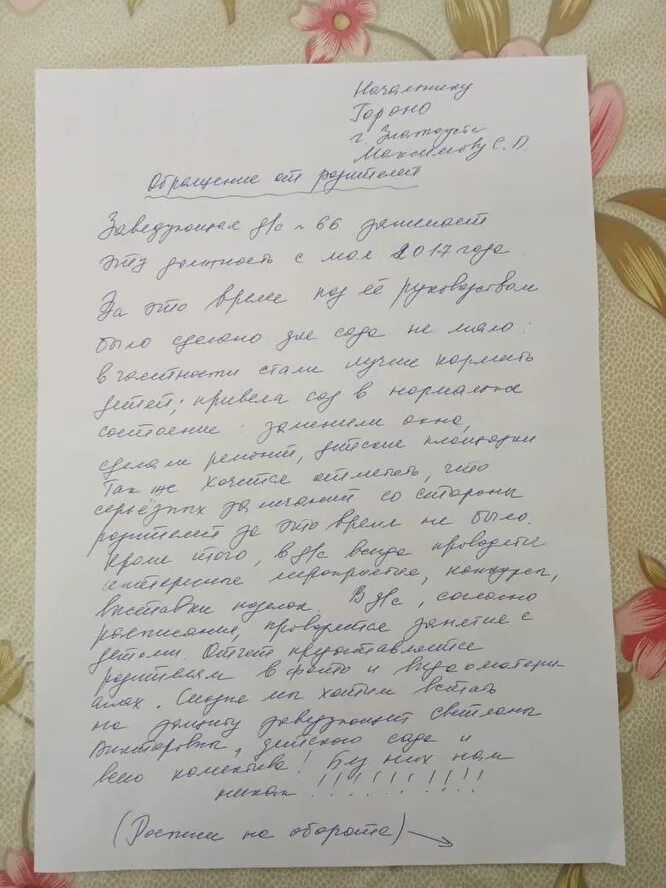 Начальнику
Гороно
г. Златоуста
Максимову С. П.
Обращение от родителей
Заведующая д/с № 66 занимает
эту должность с мая 2017 года
За это время под её руководством
было сделано для сада не мало:
в частности стали лучше кормить
детей; привела сад в нормальное
состояние: заменили окна,
сделали ремонт, детские площадки
Так же хочется отметить, что
серьёзных замечаний со стороны
родителей за это время не было.
Кроме того, в д/с всегда проводятся
интересные мероприятия, конкурсы,
выставки поделок. В д/с, согласно
расписания, проводятся занятия с
детьми. Отчет предоставляется
родителям в фото и видеоматери
алах. Сегодня мы хотим встать
на защиту заведующей Светланы
Викторовны, детского сада и
всего коллектива! Без них нам
никак !!!!!!!!!!
(Росписи на обороте) →